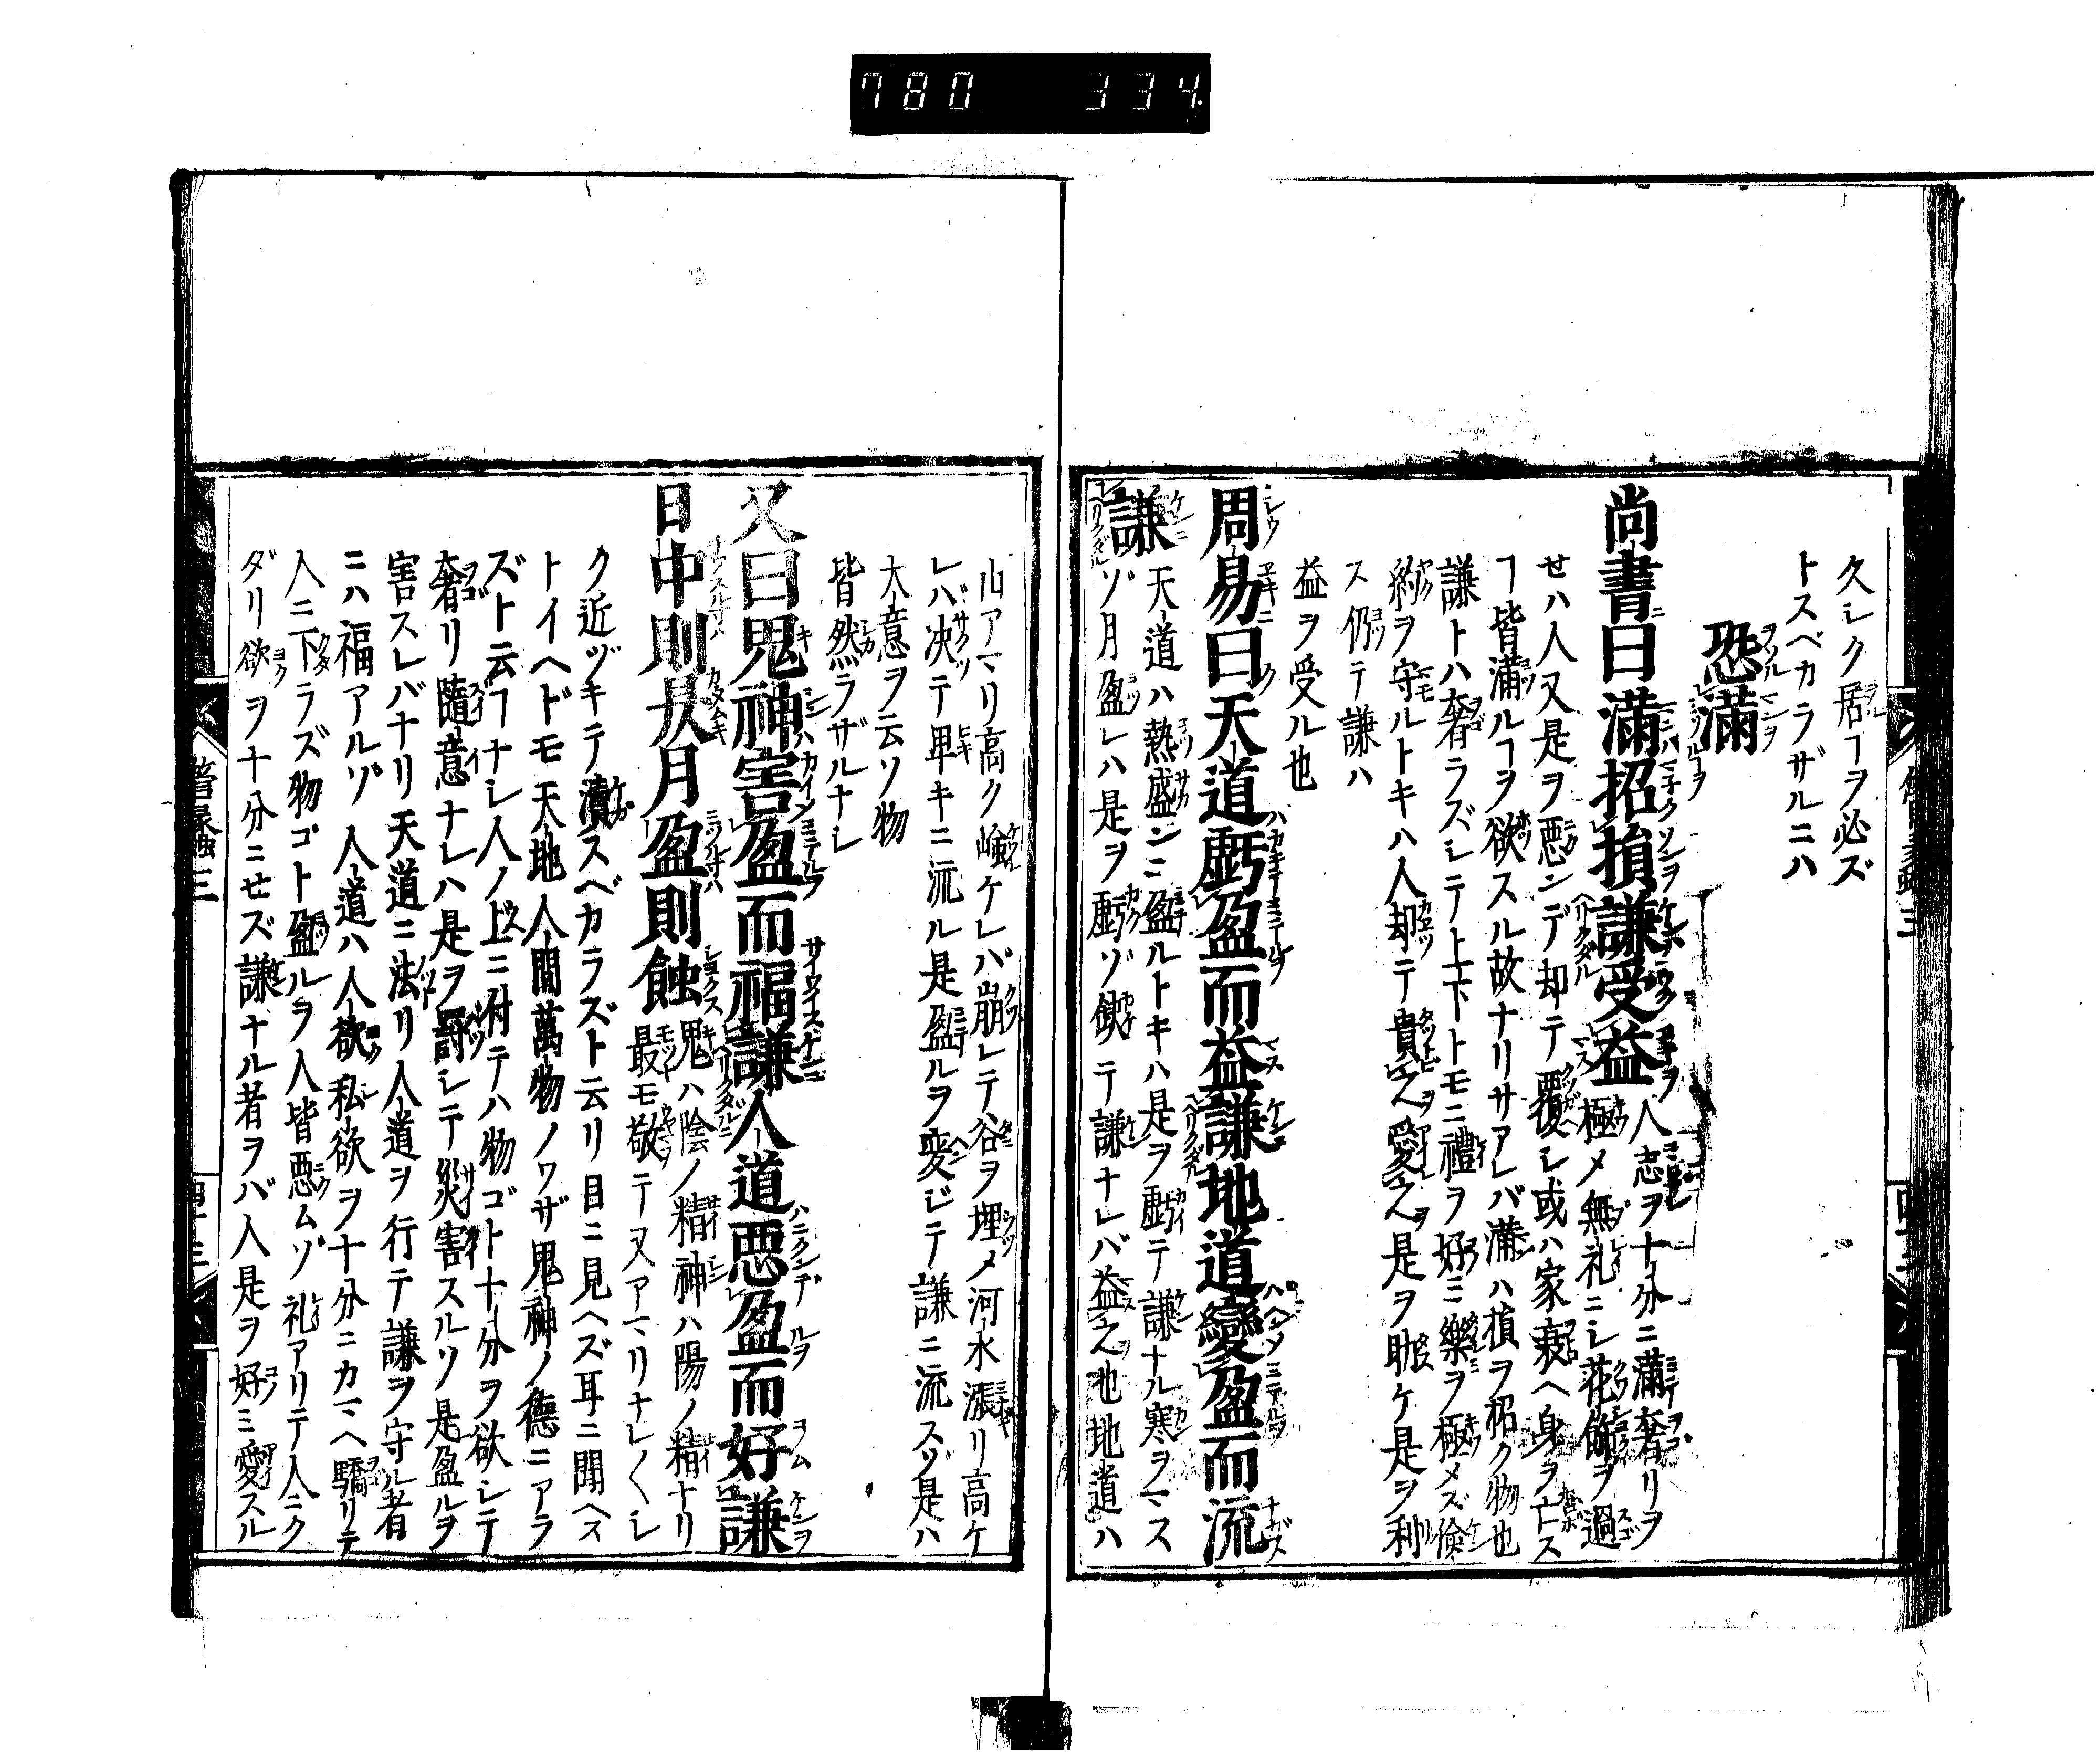 780 334
久シク居ヿヲ必ズ
トスベカラザルニハ
恐滿
尚書曰滿招損謙受益人志ヲ十分ニ滿奢リヲ
極メ無礼ニシ花飾ヲ過
セハ人又是ヲ悪ンデ却テ覆シ或ハ家衰ヘ身ヲ亡ス
ヿ皆滿ルヿヲ欲スル故ナリサアレバ滿ハ損ヲ招ク物也
謙トハ奢ラズシテ上下トモニ禮ヲ好ミ樂ヲ極メズ儉
約ヲ守ルトキハ人却テ貴之愛之是ヲ助ケ是ヲ利
ス仍テ謙ハ
益ヲ受ル也
周易曰天道虧盈而益謙地道變盈而流
謙天道ハ熱盛ンニ盈ルトキハ是ヲ虧テ謙ナル寒ヲマス
ゾ月盈レハ是ヲ虧ゾ缺テ謙ナレバ益之也地道ハ
山アマリ高ク嶮ケレバ崩レテ谷ヲ埋メ河水漲リ高ケ
レバ决テ卑キニ流ル是盈ルヲ変ジテ謙ニ流スゾ是ハ
大意ヲ云ソ物
皆然ラザルナシ
又曰鬼神害盈而福謙人道悪盈而好謙
日中則昃月盈則蝕鬼ハ陰ノ精神ハ陽ノ精ナリ
最モ敬テ又アマリナレ〱シ
ク近ヅキテ瀆スベカラズト云リ目ニ見ヘズ耳ニ聞ヘズ
トイヘドモ天地人間萬物ノワザ鬼神ノ德ニアラ
ズト云ヿナシ人ノ上ニ付テハ物ゴト十分ヲ欲シテ
奢リ隨意ナレハ是ヲ罸シテ災害スルソ是盈ルヲ
害スレバナリ天道ニ法リ人道ヲ行テ謙ヲ守ル者
ニハ福アルゾ人道ハ人欲私欲ヲ十分ニカマヘ驕リテ
人ニ下ラズ物ゴト盈ルヲ人皆悪ムゾ礼アリテ人ニク
ダリ欲ヲ十分ニセズ謙ナル者ヲバ人是ヲ好ミ愛スル